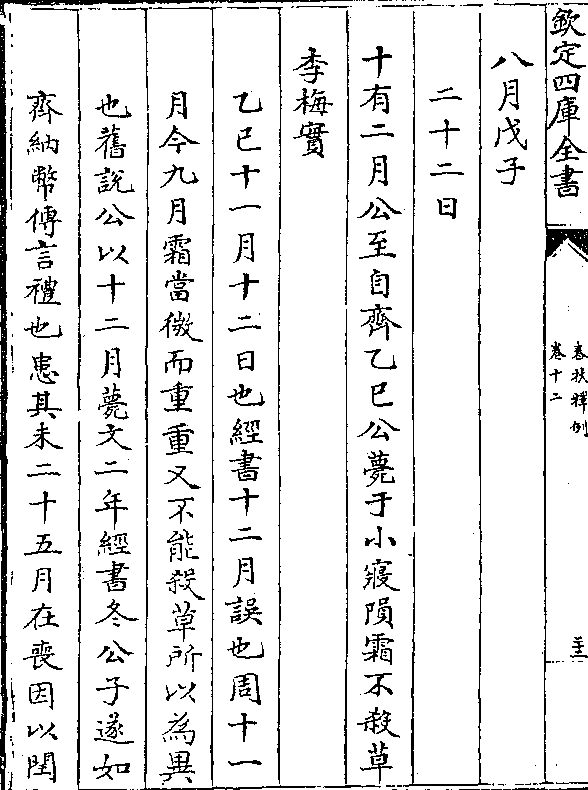 欽定四庫全書
春秋釋例
卷十二
八月戊子
二十二日
十有二月公至自齊乙巳公薨于小寢隕霜不殺草
李梅實
乙巳十一月十二日也經書十二月誤也周十一
月今九月霜當微而重重又不能殺草所以為異
也舊説公以十二月薨文二年經書冬公子遂如
齊納幣傳言禮也患其未二十五月在喪因以閏